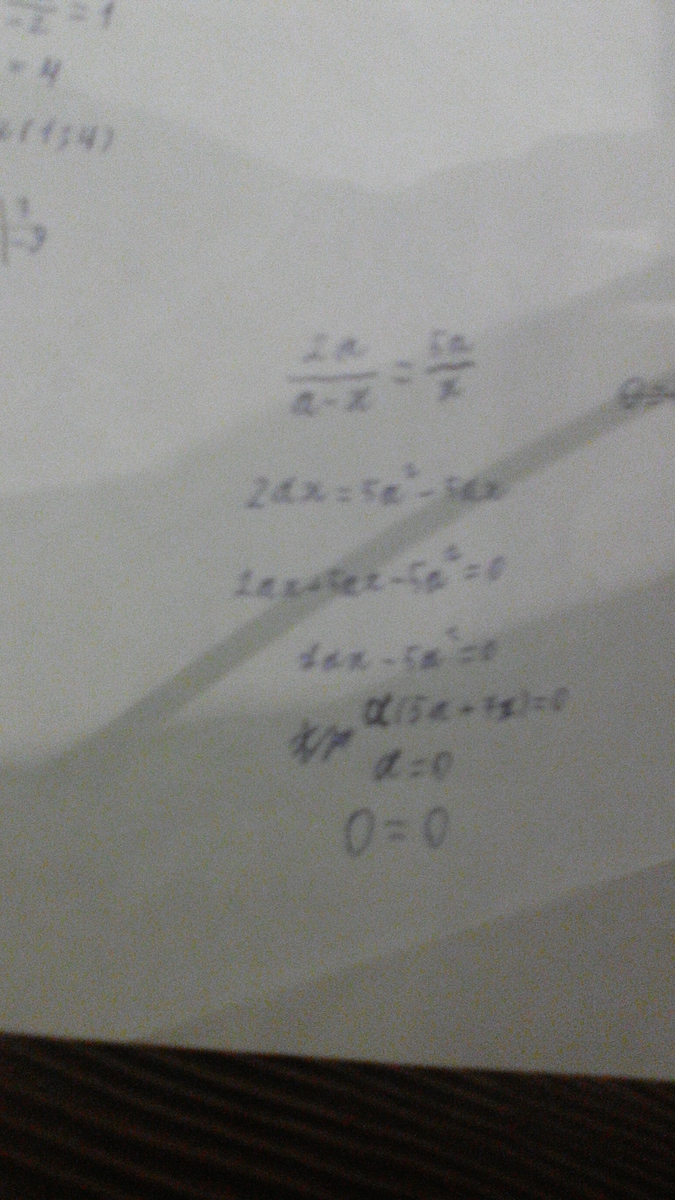 -2 = 1
= 4
(1;4)
-9
2a/(a-x) = 5a/x
2ax = 5a² - 5ax
2ax + 5ax - 5a² = 0
7ax - 5a² = 0
a(5a + 7x) = 0
a = 0
0 = 0